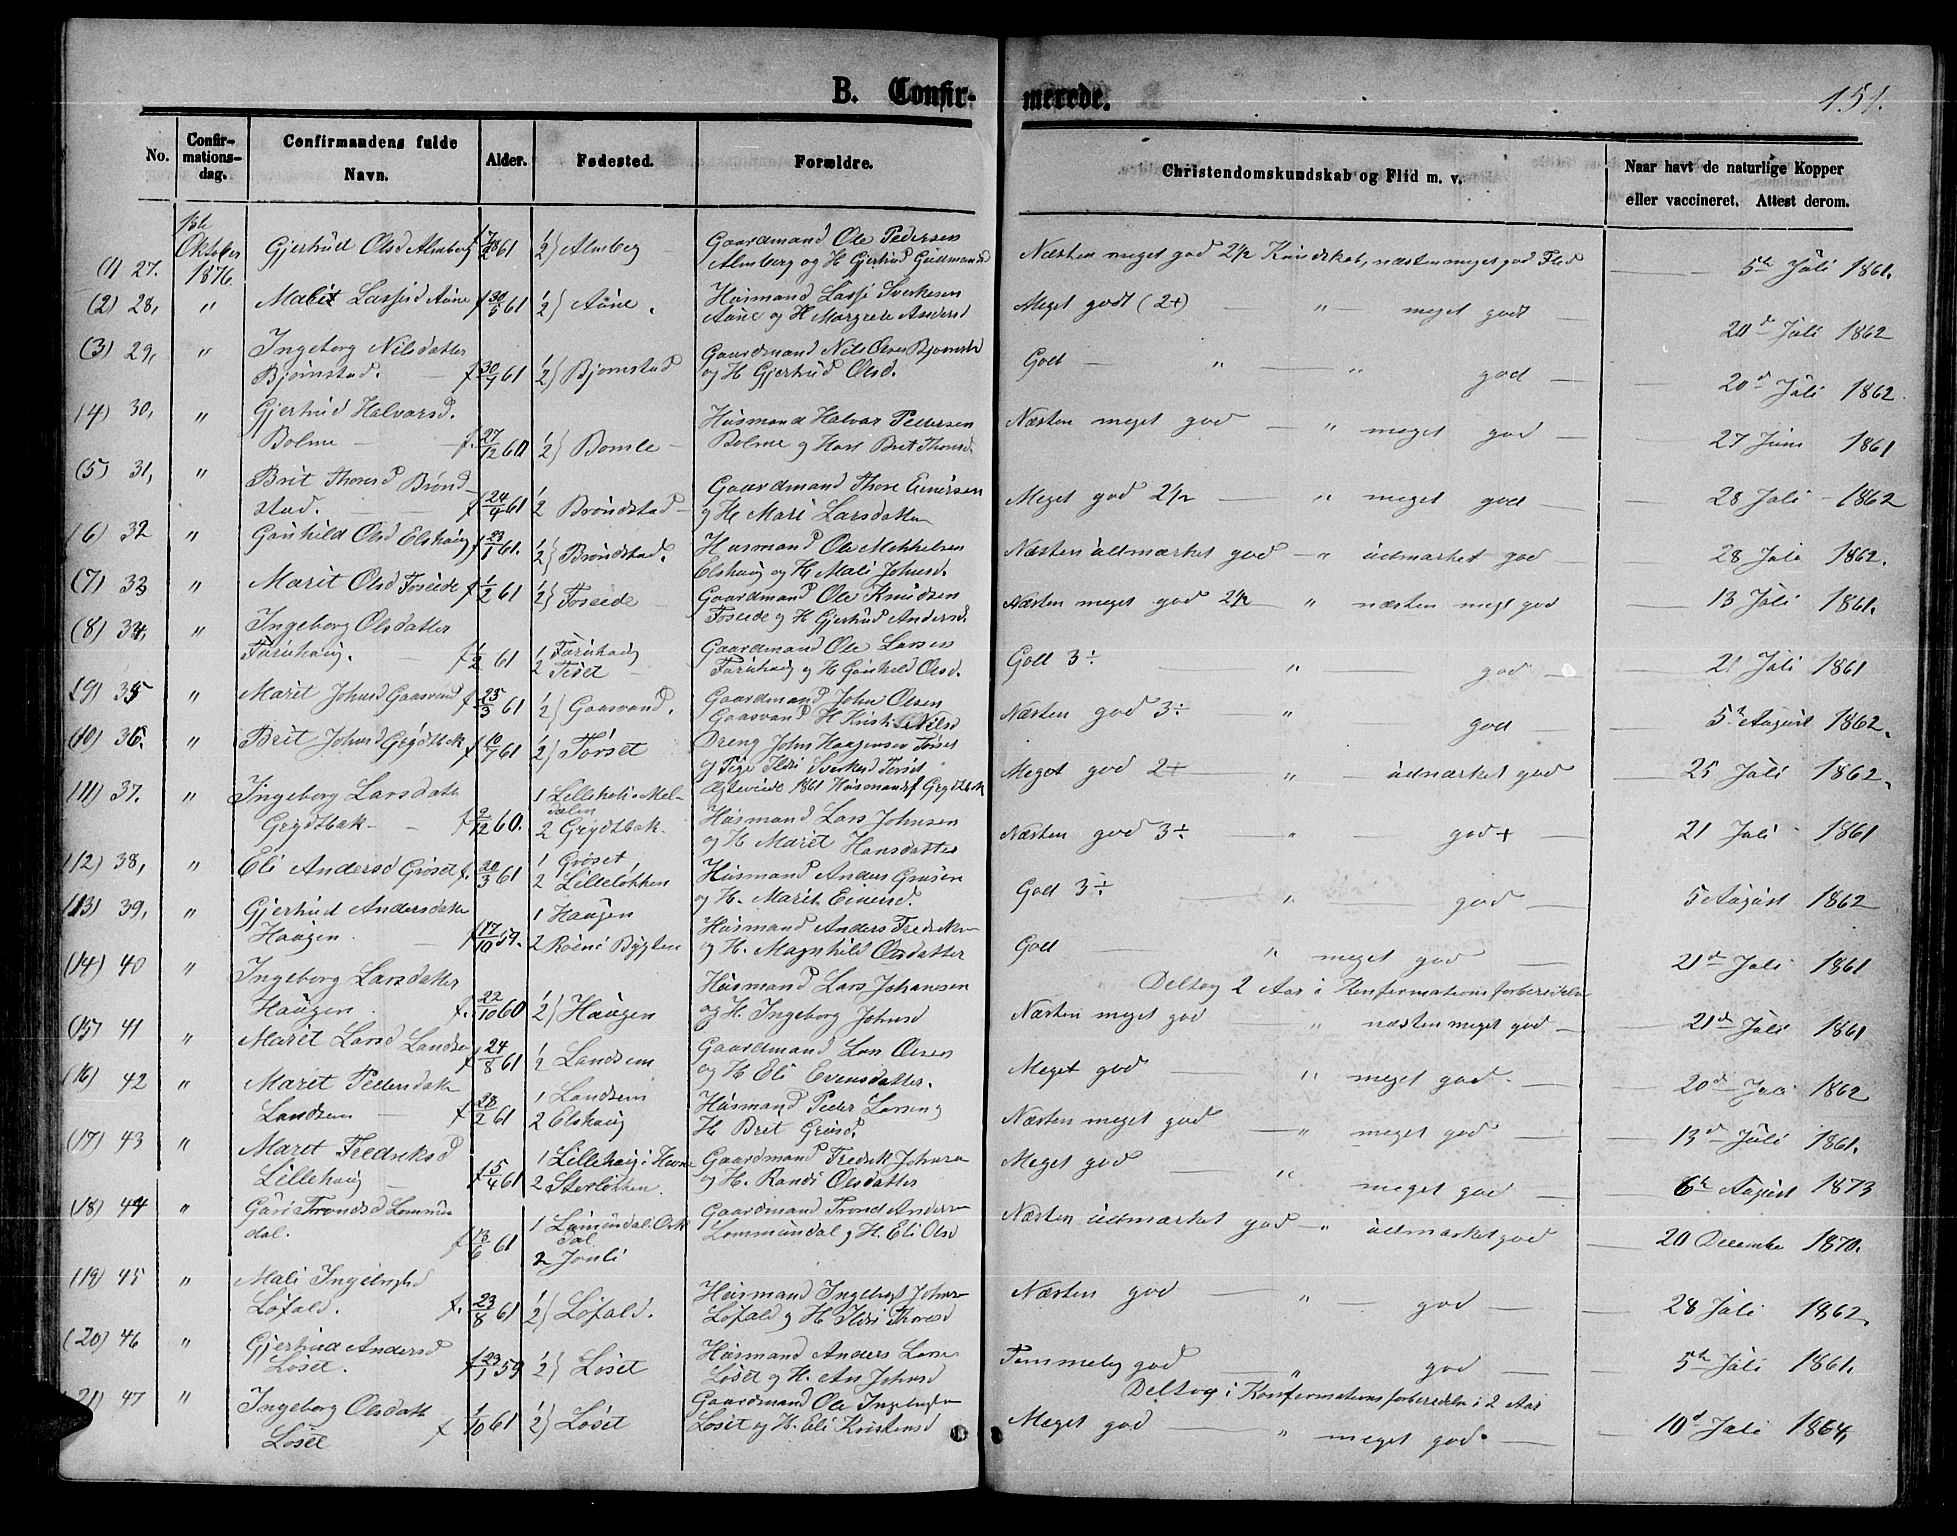 B. Confir-
merede.
151.
No.
Confir-
mations-
dag.
Confirmandens fulde
Navn.
Alder.
Fødested.
Forældre.
Christendomskundskab og Flid m. v.
Naar havt de naturlige Kopper
eller vaccineret. Attest derom.
1ste Oktober 1876.
(1) 27. Gjertrud Olsd Almberg 61 1/2) Almberg Gaardmand Ole Pedersen
Almberg og H Gjertrud Gudmunds Næsten meget god 2 1/2 Kundskab, næsten meget god Flid 5te Juli 1861.
(2) 28, " Marit Larsd Aune f 30/5 61 1/2) Aune. Husmand Lassi Sverkesen
Aune og H Margrete Andersd Meget godt (2+) " meget godt 20de Juli 1862
(3) 29, " Ingeborg Nilsdatter
Bjørnstad. f 30/7 61 1/2) Bjørnstad Gaardmand Nils Olsen Bjørnstad
og H Gjertrud Olsd. Godt " " god 20de Juli 1862.
(4) 30, " Gjertrud Halvarsd.
Bolme f. 27/12 60 1/2) Bomle Husmand Halvar Pedersen
Bolme og Hust Brit Thoresd Næsten meget god " meget god 27 Juni 1861
(5) 31, " Brit Thoresd Brønd-
stad. f 24/4 61 1/2 Brøndstad Gaardmand Thore Einersen
og H. Mari Larsdatter Meget god 2 1/2 " meget god 28 Juli 1862
(6) 32 " Gunhild Olsd Elshaug f 23/1 61. 1/2) Brøndstad. Husmand Ole Mekkelsen
Elshaug og H. Mali Johnsd. Næsten udmærket god " udmærket god 28 Juli 1862.
(7) 33 " Marit Olsd Foseide f 1/2 61 1/2) Foseide Gaardmand Ole Knudsen
Foseide og H Gjertrud Andersd. Næsten meget god 2 1/2 " næsten meget god 13 Juli 1861.
(8) 34, " Ingeborg Olsdatter
Furuhaug. f 1/2 61 1 Furuhaug
2 Gaardmand Ole Larsen
Furuhaug og H Gunhild Olsd. Godt 3÷ " god 21 Juli 1861
(9) 35 " Marit Johnsd Gaasvand f 25/3 61 1/2) Gaasvand. Gaardmand John Olsen
Gaasvand H Nilsd Næsten god 3÷ " god 5te August 1862.
(10) 36. " Brit Johnsd Grydtbak f 10/7 61 1/2) Torset Dreng John Haagensen Torset
og Pige Ildri Sverkesd Torset
Ægteviede 1861 Husmandsf Grydtbak Meget god 2+ " udmærket god 25 Juli 1862.
(11) 37. " Ingeborg Larsdatter
Grydtbak f 2/12 60. 1 Lilleholt i Mel-
dalen
2 Grydtbak Husmand Lars Johnsen
og H Marit Hansdatter Næsten god 3÷ " god+ 21 Juli 1861
(12) 38, " Eli Andersd Grøset f. 20/3 61 1 Grøset
2 Lilleløkken Husmand Anders
og H. Marit Einersd. Godt 3÷ " god 5 August 1862
(13) 39, " Gjertrud Andersdatter
Haugen f 17/10 59. 1 Haugen
2 Husmand Anders Fredriksen
og H. Magnhild Olsdatter Godt " meget god 21de Juli 1861
(14) 40 " Ingeborg Larsdatter
Haugen f. 22/10 60 1/2) Haugen Husmand Lars Johansen
og H Ingeborg Johnsd Deltog 2 Aar i Konfirmationsforberedelse
Næsten meget god " næsten meget god 21de Juli 1861
(15) 41 " Marit Larsd Landsem f 24/8 61 1/2 Landsem Gaardmand Lars Olsen
og H Eli Evensdatter. Meget god " meget god. 20de Juli 1862
(16) 42 " Marit Pedersdatter
Landsem f 28/2 61 1 Landsem
2 Elshaug Husmand Peder Larsen og
H. Brit Næsten meget god " meget god 13de Juli 1861.
(17) 43 " Maret Fredriksd
Lillehaug f 5/4 61 1 Lillehaug i Hevne
2 Storløkken. Gaardmand Fredrik Johnsen
og H. Randi Olsdatter Meget god " meget god 6te August 1873
(18) 44 " Guri Trondsd Lommun
dal. f 13/6 61 1 Lomundal i Ork
dal
2 Jonli Gaardmand Trond Andersen
Lommundal og H. Eli Olsd Næsten udmærket god " udmærket god 20 December 1870.
(19) 45 " Mali Ingebrigtsd
Løfald. f. 23/8 61 1/2) Løfald. Husmand Ingebrigt Johnsen
Løfald og H Ildri Thoresd Næsten god " god 28 Juli 1862.
(20) 46 " Gjertrud Andersd
Løset. f 23/1 59 1/2) Løset Husmand Anders Larsen
Løset og H. An Johnsd Temmelig god " god 5te Juli 1861.
(21) 47 " Ingeborg Olsdatt
Løset f 1/10 61 1/2) Løset Gaardmand Ole Ingebrigtsen
Løset og H. Eli Kristensd Deltog i Konfirmationsforberedelse i 2 Aar
Meget god " meget god. 10de Juli 1864,